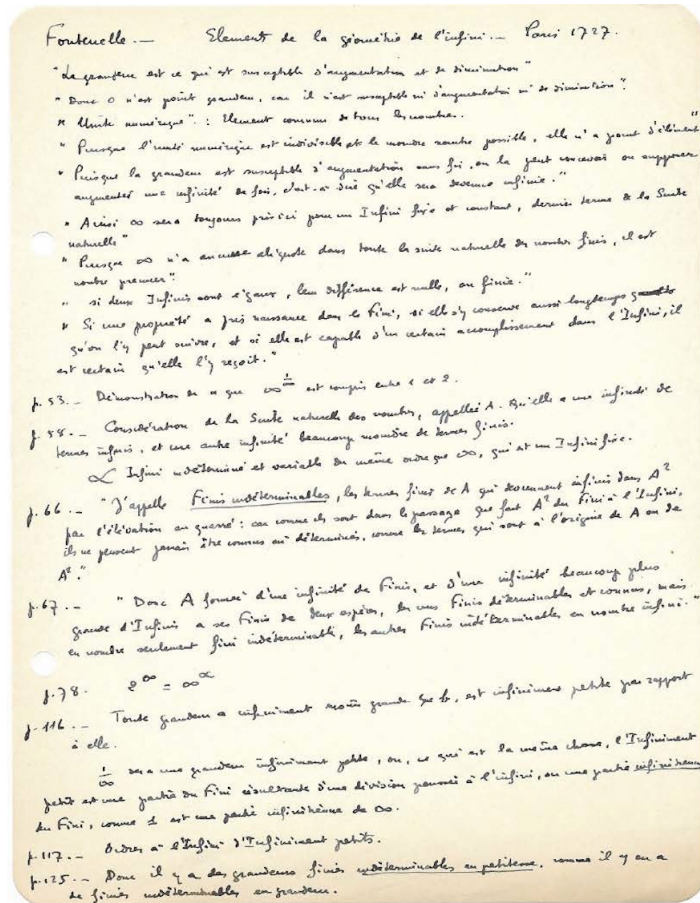 Fontenelle. — Elements de la géométrie de l'infini. — Paris 1727.
"La grandeur est ce qui est susceptible d'augmentation et de diminution"
"Donc 0 n'est point grandeur, car il n'est susceptible ni d'augmentation ni de diminution".
"Unité numérique" : Element commun de tous les nombres.
"Puisque l'unité numérique est indivisible et le moindre nombre possible, elle n'a point d'élément"
"Puisque la grandeur est susceptible d'augmentation sans fin, on la peut concevoir ou supposer
augmentée une infinité de fois, c'est-à-dire qu'elle sera devenue infinie."
"Ainsi ∞ sera toujours pris ici pour un Infini fixe et constant, dernier terme de la Suite
naturelle"
"Puisque ∞ n'a aucune aliquote dans toute la suite naturelle des nombres finis, il est
nombre premier".
"si deux Infinis sont égaux, leur différence est nulle, ou finie."
"Si une propriété a pris naissance dans le Fini, si elle s'y conserve aussi longtemps
qu'on l'y peut suivre, et si elle est capable d'un certain accomplissement dans l'Infini, il
est certain qu'elle l'y reçoit."
p. 53. — Démonstration de ce que ∞^1/∞ est compris entre 1 et 2.
p. 58. — Considération de la Suite naturelle des nombres, appellée A. Qu'elle a une infinité de
termes infinis, et une autre infinité beaucoup moindre de termes finis.
∝ Infini indéterminé et variable du même ordre que ∞, qui est un Infini fixe.
p. 66 — "J'appelle Finis indéterminables, les termes finis de A qui deviennent infinis dans A²
par l'élévation au quarré : car comme ils sont dans le passage que fait A² du Fini à l'Infini,
ils ne peuvent jamais être connus ni déterminés, comme les termes qui sont à l'origine de A ou de
A²."
p. 67. — "Donc A formée d'une infinité de Finis, et d'une infinité beaucoup plus
grande d'Infinis a ses Finis de deux espèces, les uns Finis déterminables et connus, mais
en nombre seulement fini indéterminable, les autres Finis indéterminables en nombre infini."
p. 78. 2^∞ = ∞^∝
p. 116. — Toute grandeur a infiniment moins grande que b, est infiniment petite par rapport
à elle.
1/∞ sera une grandeur infiniment petite, ou, ce qui est la même chose, l'Infiniment
petit est une partie du Fini résultante d'une division poussée à l'infini, ou une partie
du Fini, comme 1 est une partie infinitième de ∞.
p. 117. — Ordres à l'Infini d'Infiniment petits.
p. 125. — Donc il y a des grandeurs finies indéterminables en petitesse, comme il y en a
de finies indéterminables en grandeur.